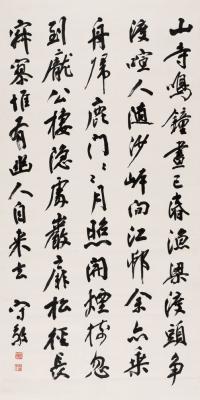 山寺鳴鐘晝已昏漁梁渡頭爭
渡喧人隨沙岸向江邨余亦乘
舟歸鹿門〻〻月照開煙樹忽
到龐公棲隱處巖扉松徑長
寂寥惟有幽人自來去 守敬